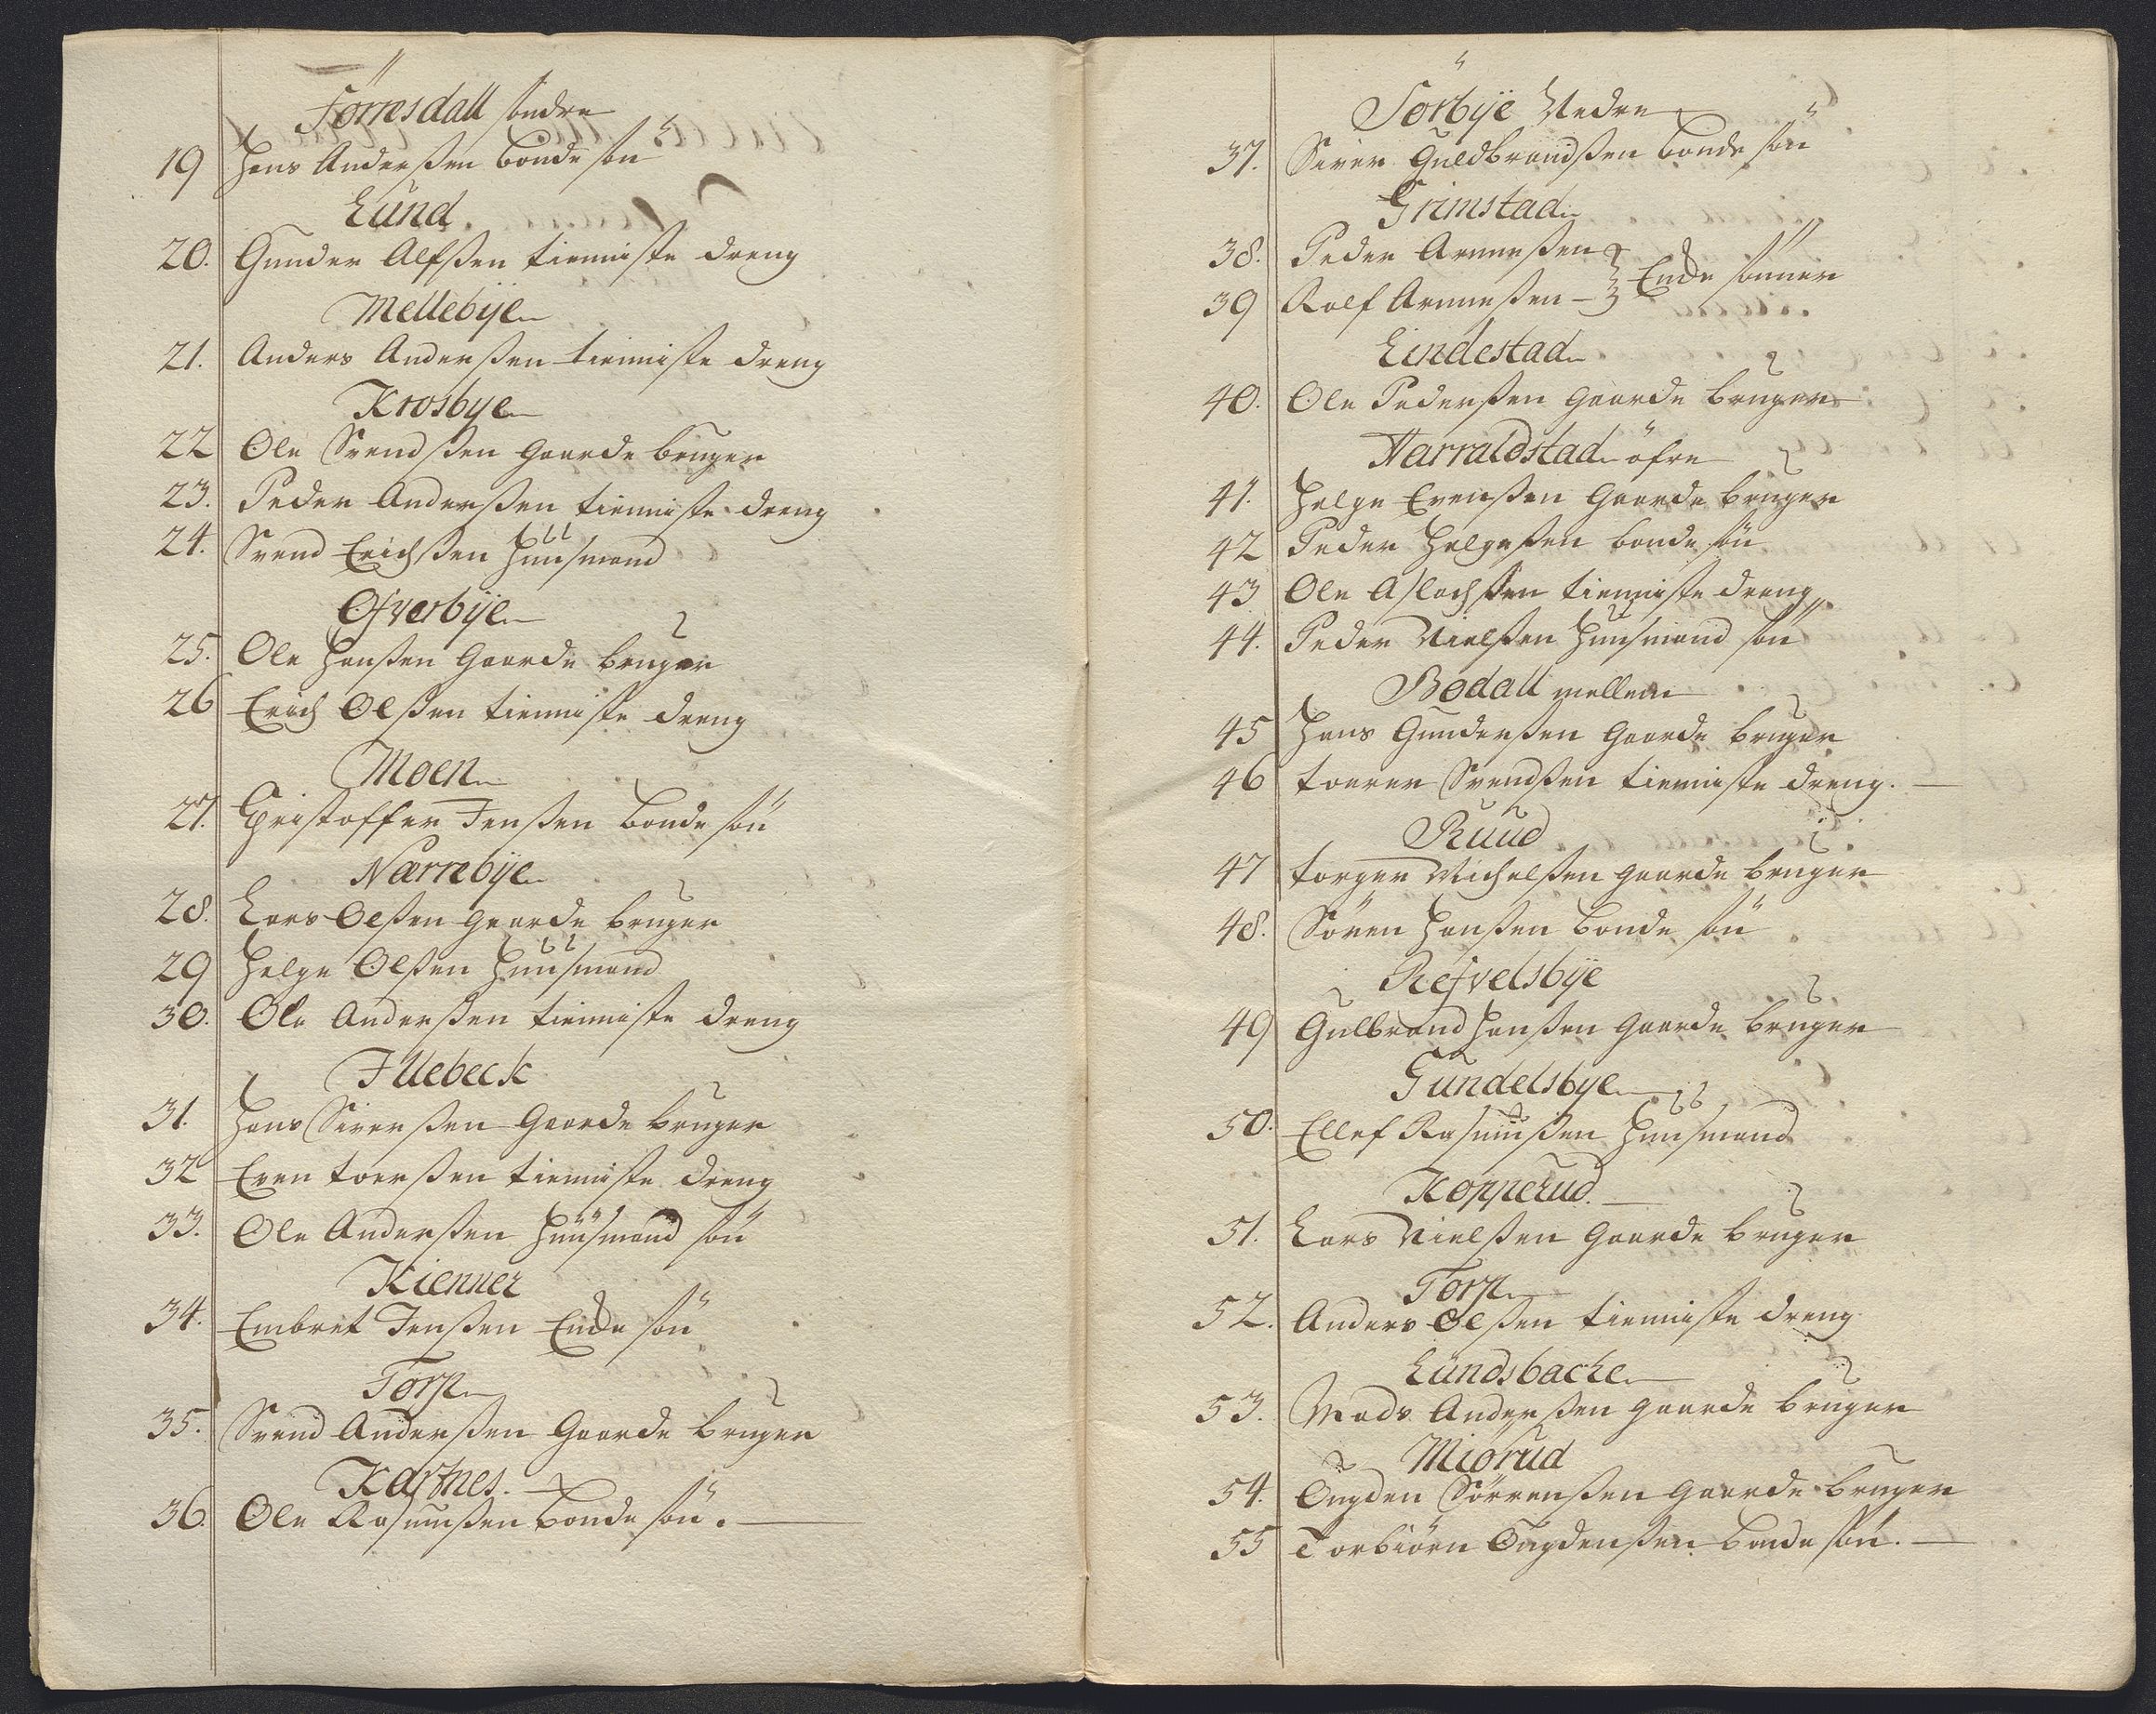 Törresdall söndre
19 Hans Anderßen bonde sön
Lund
20. Gunder Alfßen tienniste dreng
Mellebÿe
21. Anders Anderßen tienniste dreng
Krosbye
22 Ole Svendßen gaarde bruger
23. Peder Anderßen tienniste dreng
24. Svend Erichßen Huusmand
Ofverbÿe
25. Ole Hanßen Gaarde bruger
26 Erich Olßen tienniste dreng
Moen
27. Christoffer Jenßen bonde sön
Nærrebÿe
28. Lars Olßen gaarde bruger
29 Helge Olßen Huusmand
30. Ole Anderßen tienniste dreng
Illebeck
31. Hans Siverßen Gaarde bruger
32 Even toerßen tienniste dreng
33. Ole Anderßen Huusmand sön
Kienner
34. Embret Jenßen Encke sön
Torp
35. Svend Anderßen Gaarde bruger
Kasnes.
36. Ole Rasmußen bonde sön.
Sörbÿe Nedre
37. Siver Guldbrandßen bonde sön
Grimstad
38. Peder Arneßen
Encke sönner
39 Rolf Arneßen
Lindestad
40. Ole Pederßen gaarde bruger
Harraldstad öfre
41. Helge Evenßen Gaarde bruger
42 Peder Helgeßen bonde sön
43 Ole Aslachßen tienniste dreng
44. Peder Nielßen Huusmand sön
Bödall mellem
45 Hans Gunderßen Gaarde bruger
46 toerer Svendßen tienniste dreng.
Ruud
47 torger Michelßen gaarde bruger
48. Sören Hanßen bonde sön
Refvelsbÿe
49 Gulbrand Hanßen Gaarde bruger
Gundelsbye
50. Ellef Rasmußen Huusmand
Kopperud.
51. Lars Nielßen Gaarde bruger
Torp
52. Anders Olßen tienniste dreng
Lundsbacke
53. Mads Anderßen gaarde bruger
Miörud
54. Ougden Sörrenßen gaarde bruger
55 Torbiörn Ougdenßen bonde sön.